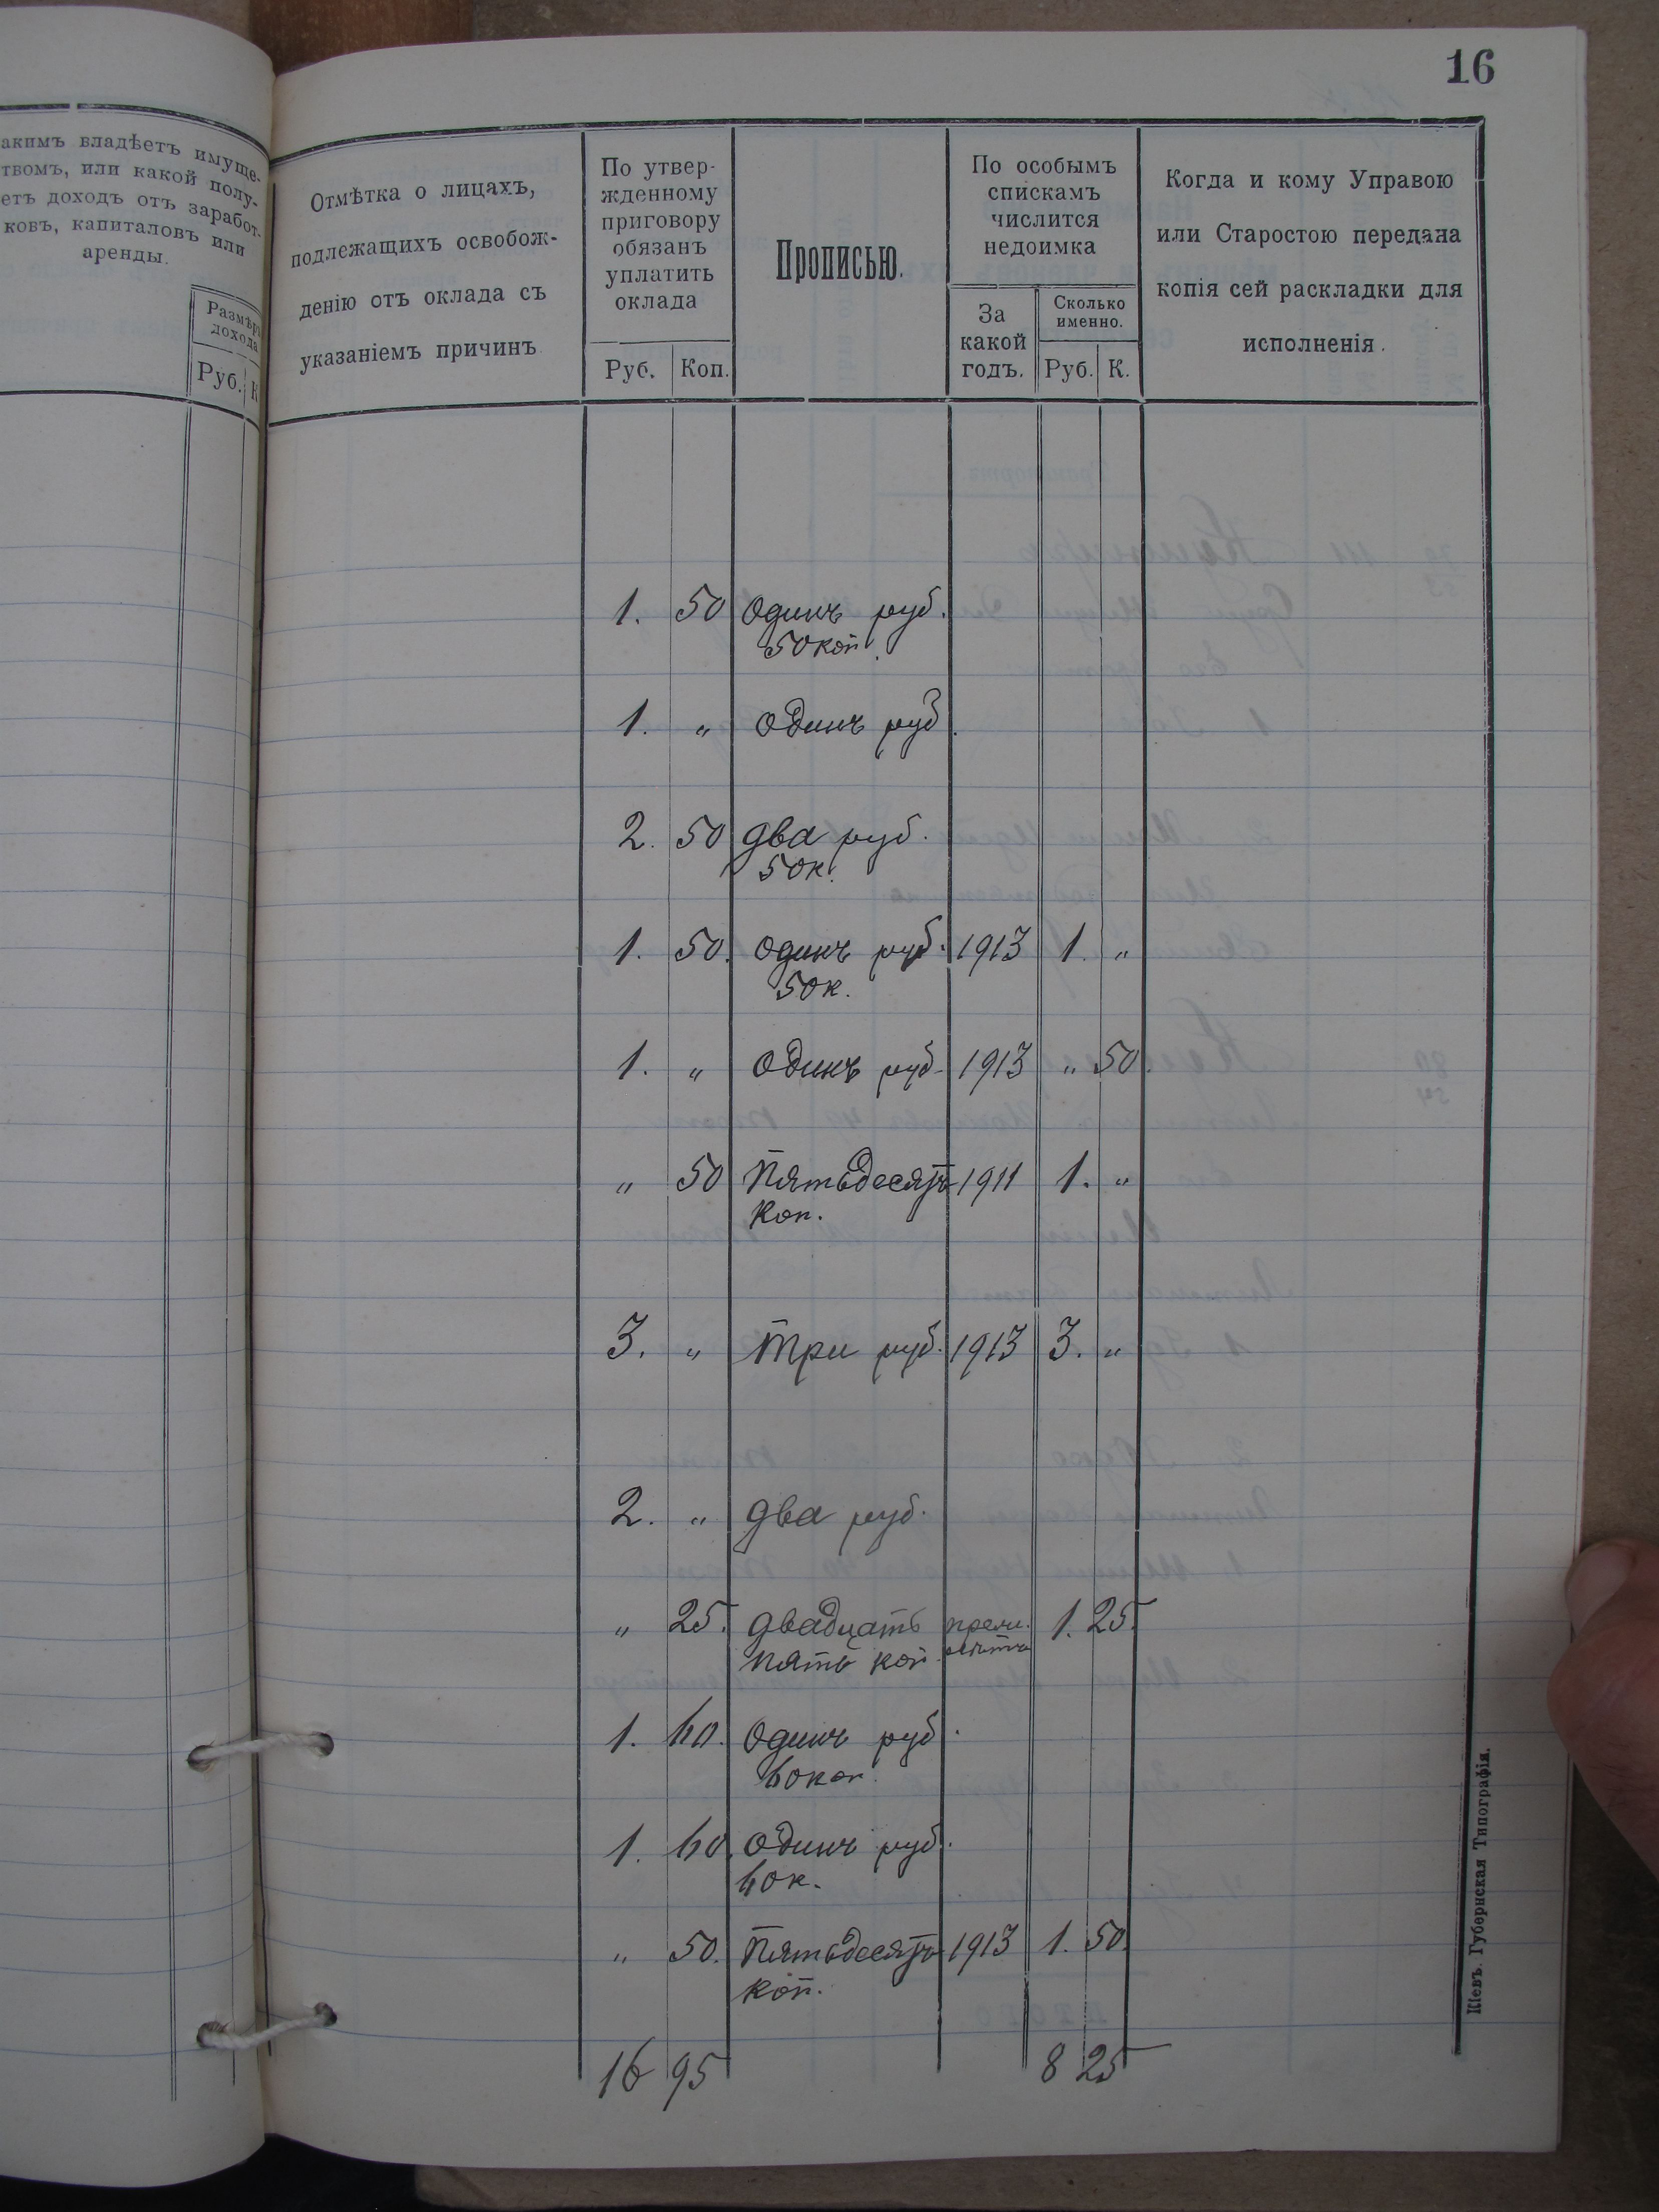 16
акимъ владѣетъ имуще-
твомъ, или какой полу-
етъ доходъ отъ заработ-
ковъ, капиталовъ или
аренды.
Размѣръ
дохода
Руб. К
Отмѣтка о лицахъ,
подлежащихъ освобож-
денію отъ оклада съ
указаніемъ причинъ
По утвер-
жденному
приговору
обязанъ
уплатить
оклада
Руб. Коп.
Прописью.
По особымъ
спискамъ
числится
недоимка
За
какой
годъ.
Сколько
именно.
Руб. К.
Когда и кому Управою
или Старостою передана
копія сей раскладки для
исполненія.
1. 50 Одинъ руб.
50 коп.
1. " Одинъ руб.
2. 50 Два руб.
50 к.
1. 50. Одинъ руб. 1913 1. "
50 к.
1. " Одинъ руб. 1913 " 50.
" 50 Пятьдесятъ 1911 1. "
Коп.
3. " Три руб. 1913 3. "
2. " Два руб.
" 25. Двадцать 1. 25.
пять коп.
1. 60. Одинъ руб.
60 коп.
1. 60. Одинъ руб.
60 к.
" 50. Пятьдесятъ 1913 1. 50.
коп.
16 95 8 25
Кіевъ. Губернская Типографія.